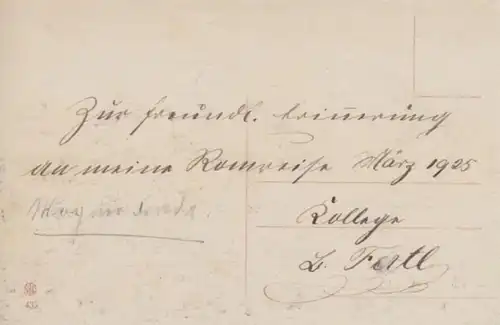 Zur freundl. Erinnerung
an meine Romreise März 1925
Kollege
L. Fertl
435